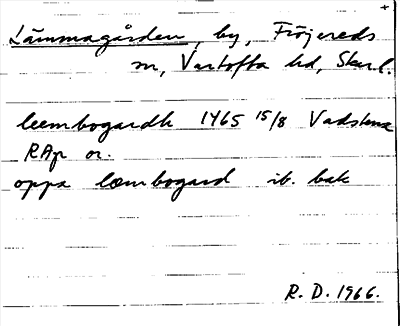 +
Lämmagården, by, Fröjereds
sn, Vartofta hd, Skarl.
leembogardh 1465 15/8 Vadstena
RAp or.
oppa læmbogard ib. bak
R. D. 1966.